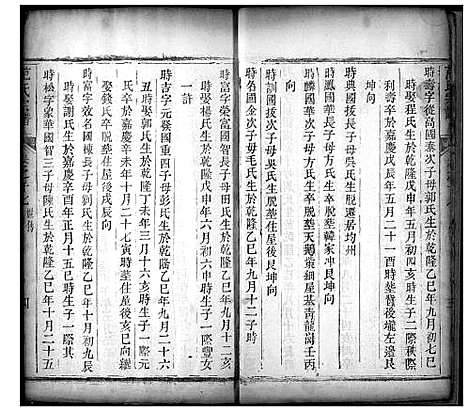 時壽字從高國泰次子母郭氏生於乾隆乙巳年九月初七巳
時娶程氏生於乾隆戊申年五月初四亥時生子二際秩際
利壽卒於嘉慶戊辰年五月二十一酉時葬背後壠左邊艮
坤向
時典國拔長子母吳氏生脫遷居均州
時瀛國華次子母方氏生卒脫葬韓家沖艮坤向
時麟國華次子母方氏生卒脫葬天鵝窠細屋基青龍崗壬丙
向
時訓國拔次子母吳氏生卒脫葬住屋後艮坤向
時名國金次子母毛氏生於乾隆乙巳年九月十二子時
時富字榮富國智長子母田氏生於乾隆乙巳年九月十二亥
時娶楊氏生於乾隆戊申年六月初六申時生子一際豐女
一許
時吉字元發國重四子母彭氏生於乾隆乙巳年九月二十六
丑時娶郭氏生於乾隆丁未年三月十六亥時生子一際元
氏卒於嘉慶辛未年十月二十七寅時葬住屋後亥巳向繼
娶錢氏卒葬住屋後戌辰向
時富字效名國棟長子母劉氏生於乾隆乙巳年十月初九辰
時娶謝氏生於嘉慶辛酉年正月十五巳時生子一際其
時松字象華國智三子母陳氏生於乾隆乙巳年十月二十五